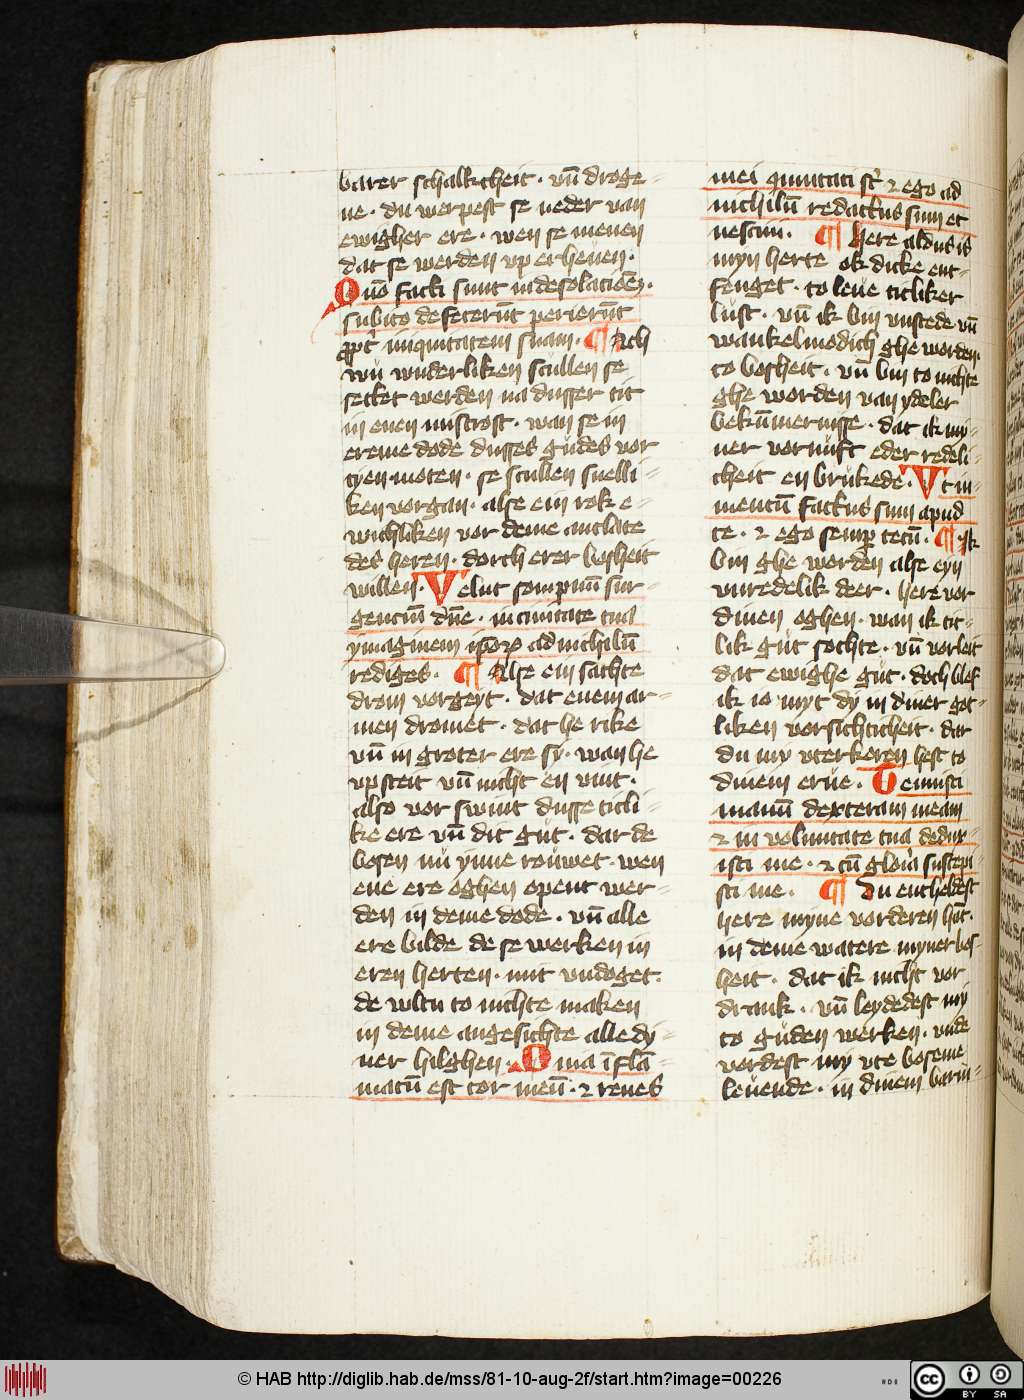 barer schalkcheit · vn̄ droge-
ne · du werpest se neder van
ewigher ere · wen se menen
dat se werden vp erheuen ·
Quō facti sunt in desolacionē ·
subito defecerūt perierūt
ꝓpt̓ iniquitatem suam · ¶ Ach
wů wnderliken scullen se
secket werden na dusser tit
in enen mistrost · wan se in
ereme dode dusses gůdes vor
tyen moten · se scullen snelli-
ken vorgan · alse ein rok e-
wichliken vor deme antlate
des heren · dorch erer bosheit
willen · Velut sompnium sur-
gencium dn̄e · in ciuitate tua
ymaginem ip̄oꝝ ad nichilū
rediges · ¶ Alse ein sachte
drom vorgeyt · dat enem ar-
men dromet · dat he rike
vn̄ in groter ere sy · wan he
vpsteit vn̄ nicht en vint ·
also vor swint dusse titli-
ke ere vn̄ dit gůt · dar de
bosen nů ynne rouwet · wen
ene ere oghen opent wer-
den in deme dode · vn̄ alle
ere bilde de se werken in
eren herten · mit vndoget ·
de wltu to nichte maken
in deme angesichte alle dy-
ner hilghen · Quia īflā
matū est cor meū · ⁊ renes
mei ⁊ ego ad
nichilū redactus sum et
nesciui · ¶ Here aldus is
myn herte ok dicke ent-
fenget · to leue titliker
lust · vn̄ ik bin vnstede vn̄
wankelmodich ghe worden ·
to bosheit · vn̄ bin to nichte
ghe worden van ydeler
bekūmernisse · dat ik my-
ner vornůft eder redeli-
cheit en brukede · Vt iu-
mentū factus sum apud
te · ⁊ ego semꝑ tecū · ¶ Ik
bin ghe worden alse eyn
vnredelik deer · here vor
dinen oghen · wan ik tit-
lik gůt sochte · vn̄ vorleit
dat ewighe gůt · doch blef
ik io myt dy in diner got-
liken vorsichticheit · dat
du my vterkeren hest to
dinem erue · Tenuisti
manū dexteram meam
⁊ in voluntate tua dedux-
isti me · ⁊ cū gloria suscepi-
sti me · ¶ Du entheldest
here myne vorderen hāt ·
in deme watere myner bos-
heit · dat ik nicht vor
drank · vn̄ leydedest my
to gůden werken · vnde
vordest my vte boseme
leuende · in dinem barm-
© HAB http://diglib.hab.de/mss/81-10-aug-2f/start.htm?image=00226
HAB
cc
BY SA